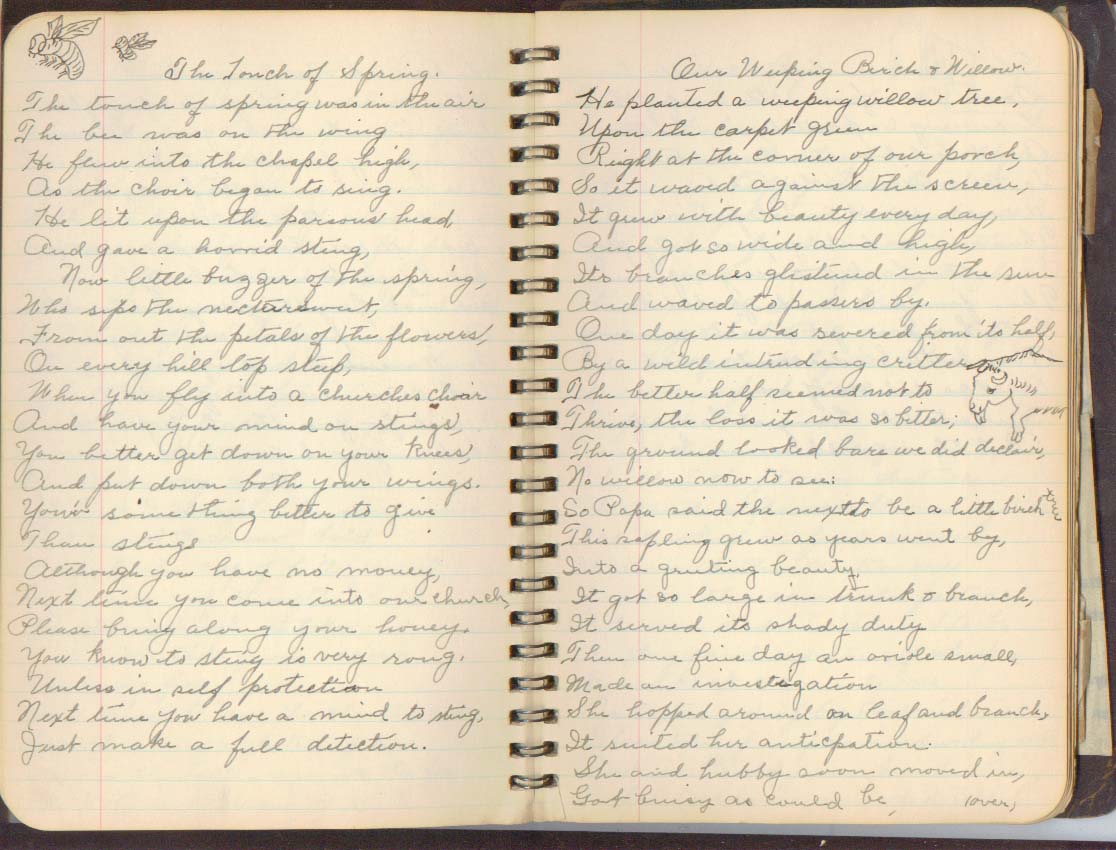 The Touch of Spring.
The touch of spring was in the air
The bee was on the wing
He flew into the chapel high,
As the choir began to sing.
He lit upon the parsons head,
And gave a horrid sting,
Now little buzzer of the spring,
Who sips the nectur sweet,
From out the petals of the flowers,
On every hill top steep,
When you fly into a churches choir
And have your mind on stings,
You better get down on your knees,
And put down both your wings.
You've something better to give
Than stings
Although you have no money,
Next time you come into our church,
Please bring along your honey.
You know to sting is very rong.
Unless in self protection
Next time you have a mind to sting,
Just make a full detection.
Our Weeping Birch & Willow.
He planted a weeping willow tree,
Upon the carpet green
Right at the corner of our porch,
So it waved against the screen,
It grew with beauty every day,
And got so wide and high,
Its branches glistened in the sun
And waved to passers by.
One day it was severed from its half,
By a wild intruding critter
The better half seemed not to
Thrive, the loss it was so better,
The ground looked bare we did declair,
No willow now to see:
So Papa said the next to be a little birch tree
This sapling grew as years went by,
Into a gruting beauty.
It got so large in trunk & branch,
It served its shady duty
Then one fine day an oriole small,
Made an investigation
She hopped around on leaf and branch,
It suited her anticpation.
She and hubby soon moved in,
Got buisy as could be, (over)